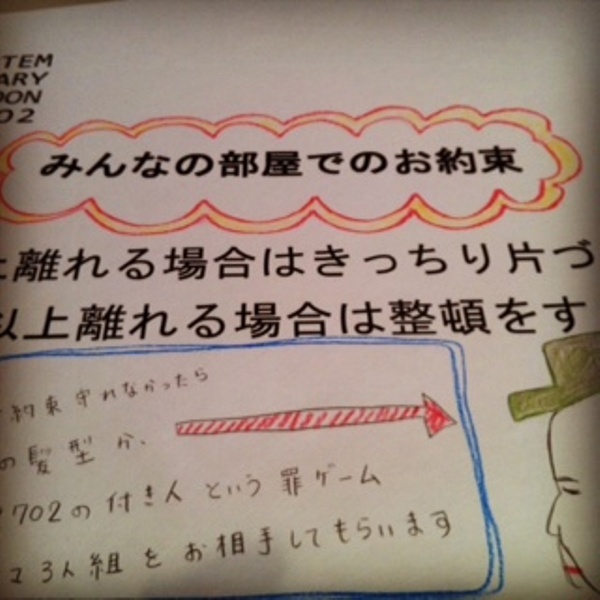 TEM
ARY
OON
02
みんなの部屋でのお約束
上離れる場合はきっちり片づ
以上離れる場合は整頓をす
約束守れなかったら
の髪型か、
702の付き人という罪ゲーム
3人組をお相手してもらいます